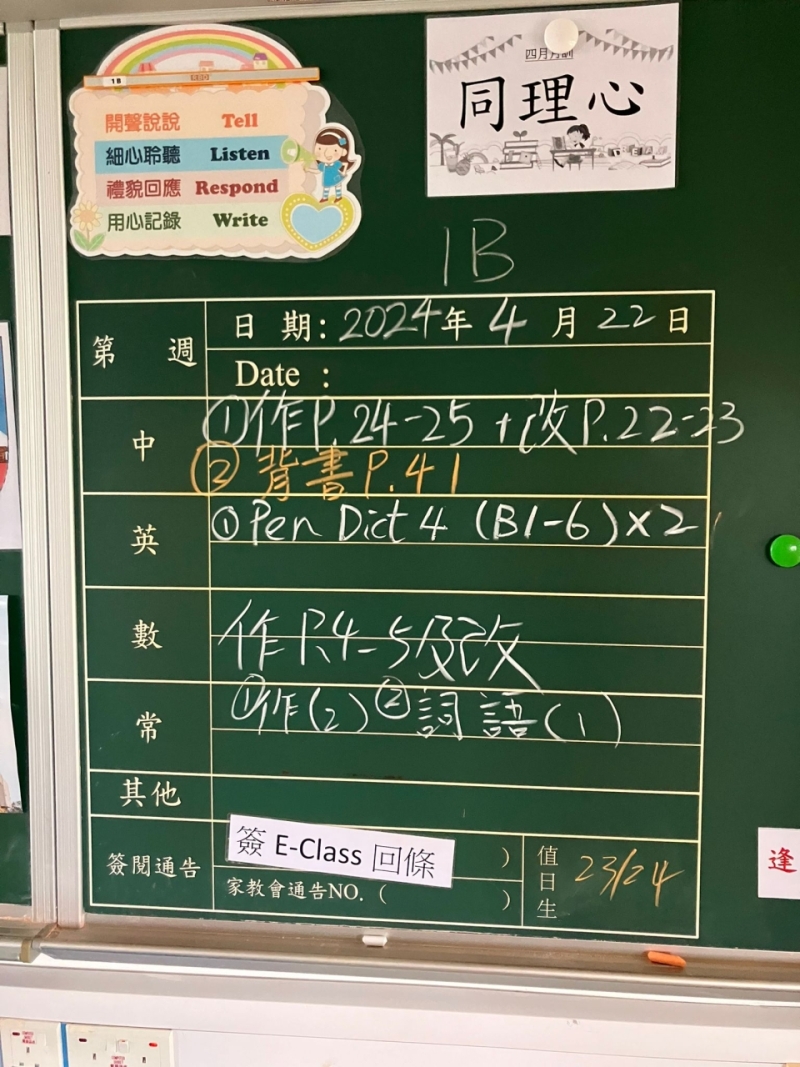 1B
開聲說說 Tell
細心聆聽 Listen
禮貌回應 Respond
用心記錄 Write
四月月訓
同理心
1B
第 週
日期: 2024年 4 月 22 日
Date :
中
①作P.24-25 +改P.22-23
② 背書P.41
英
① Pen Dict 4 (B1-6)×2
數
作P.4-5及改
常
①作(2) ②詞語(1)
其他
簽閱通告
簽 E-Class 回條 )
家教會通告NO. ( )
值日生
23/24
逢